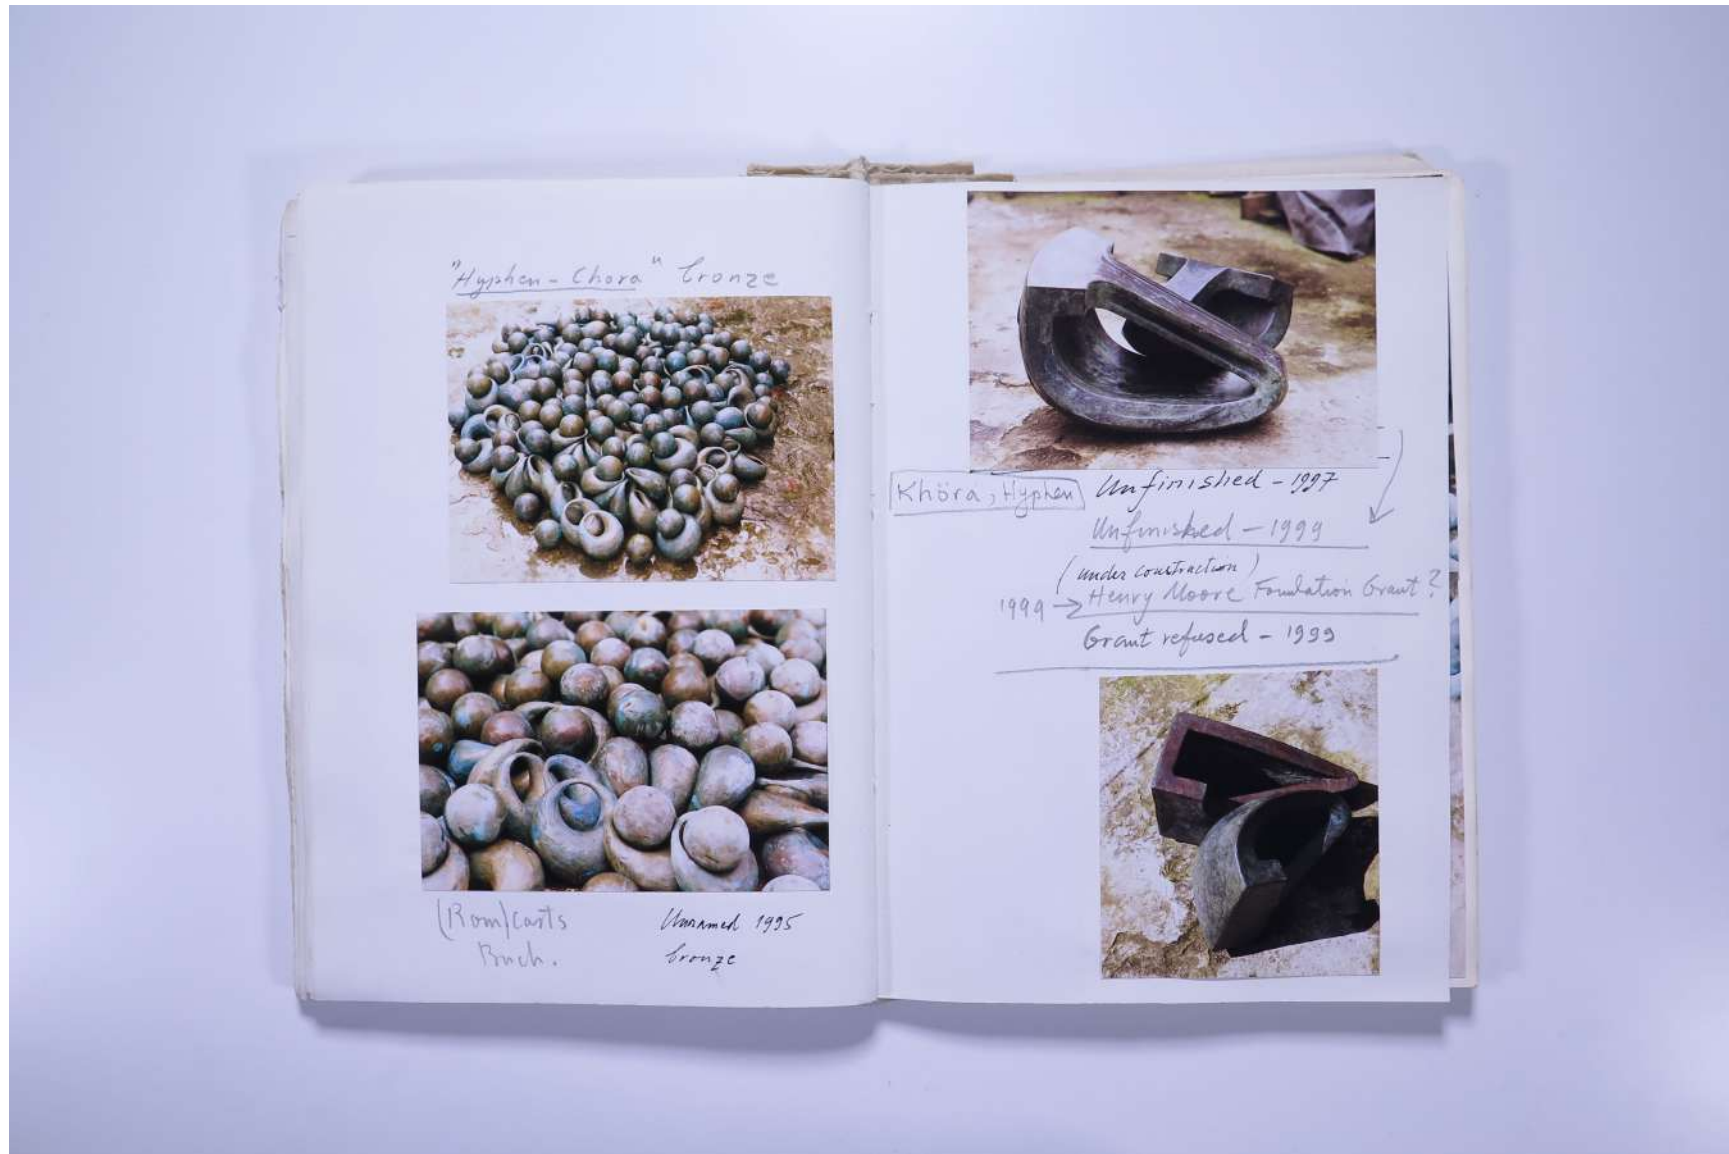 "Hyphen - Chora" bronze
(Rom) casts
Buch.
Unnamed 1995
bronze
Khöra, Hyphen
Unfinished - 1997
Unfinished - 1999
(under constraction)
1999 → Henry Moore Foundation Grant?
Grant refused - 1999